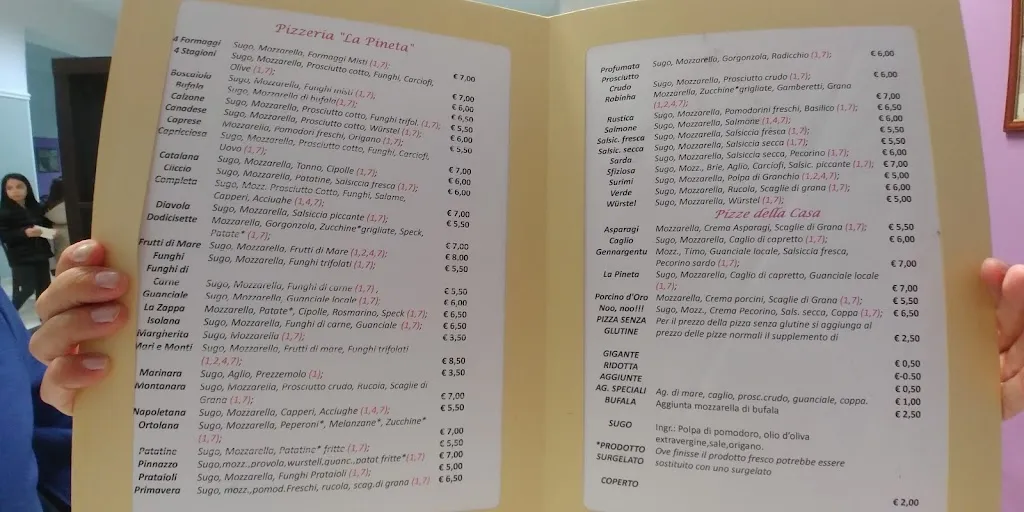 Pizzeria "La Pineta"
4 Formaggi Sugo, Mozzarella, Formaggi Misti (1,7);
4 Stagioni Sugo, Mozzarella, Prosciutto cotto, Funghi, Carciofi,
Olive (1,7); € 7,00
Boscaiola Sugo, Mozzarella, Funghi misti (1,7); € 7,00
Bufala Sugo, Mozzarella di bufala(1,7); € 6,00
Calzone Sugo, Mozzarella, Prosciutto cotto, Funghi trifol. (1,7); € 6,50
Canadese Sugo, Mozzarella, Prosciutto cotto, Würstel (1,7); € 5,50
Caprese Mozzarella, Pomodori freschi, Origano (1,7); € 6,00
Capricciosa Sugo, Mozzarella, Prosciutto cotto, Funghi, Carciofi, € 5,50
Uovo (1,7);
Catalana Sugo, Mozzarella, Tonno, Cipolle (1,7); € 7,00
Ciccio Sugo, Mozzarella, Patatine, Salsiccia fresca (1,7); € 6,00
Completa Sugo, Mozz. Prosciutto Cotto, Funghi, Salame, € 6,00
Capperi, Acciughe (1,4,7);
Diavola Sugo, Mozzarella, Salsiccia piccante (1,7); € 7,00
Dodicisette Mozzarella, Gorgonzola, Zucchine*grigliate, Speck, € 5,50
Patate* (1,7);
Frutti di Mare Sugo, Mozzarella, Frutti di Mare (1,2,4,7); € 7,00
Funghi Sugo, Mozzarella, Funghi trifolati (1,7); € 8,00
Funghi di € 5,50
Carne Sugo, Mozzarella, Funghi di carne (1,7) ;
Guanciale Sugo, Mozzarella, Guanciale locale (1,7); € 5,50
La Zappa Mozzarella, Patate*, Cipolle, Rosmarino, Speck (1,7); € 6,00
Isolana Sugo, Mozzarella, Funghi di carne, Guanciale (1,7); € 6,50
Margherita Sugo, Mozzarella (1,7); € 6,50
Mari e Monti Sugo, Mozzarella, Frutti di mare, Funghi trifolati € 3,50
(1,2,4,7);
Marinara Sugo, Aglio, Prezzemolo (1); € 8,50
Montanara Sugo, Mozzarella, Prosciutto crudo, Rucola, Scaglie di € 3,50
Grana (1,7);
Napoletana Sugo, Mozzarella, Capperi, Acciughe (1,4,7); € 7,00
Ortolana Sugo, Mozzarella, Peperoni*, Melanzane*, Zucchine* € 5,50
(1,7);
Patatine Sugo, Mozzarella, Patatine* fritte (1,7); € 7,00
Pinnazzo Sugo,mozz.,provola,wurstell,guanc.,patat.fritte*(1,7) € 5,50
Prataioli Sugo, Mozzarella, Funghi Prataioli (1,7); € 7,00
Primavera Sugo, mozz.,pomod.Freschi, rucola, scag.di grana (1,7) € 5,00
€ 6,50
Profumata Sugo, Mozzarella, Gorgonzola, Radicchio (1,7); € 6,00
Prosciutto
Crudo Sugo, Mozzarella, Prosciutto crudo (1,7); € 6,00
Robinha Mozzarella, Zucchine*grigliate, Gamberetti, Grana
(1,2,4,7); € 7,00
Rustica Sugo, Mozzarella, Pomodorini freschi, Basilico (1,7); € 6,50
Salmone Sugo, Mozzarella, Salmone (1,4,7); € 6,00
Salsic. fresca Sugo, Mozzarella, Salsiccia fresca (1,7); € 5,50
Salsic. secca Sugo, Mozzarella, Salsiccia secca (1,7); € 5,50
Sarda Sugo, Mozzarella, Salsiccia secca, Pecorino (1,7); € 6,00
Sfiziosa Sugo, Mozz., Brie, Aglio, Carciofi, Salsic. piccante (1,7); € 7,00
Surimi Sugo, Mozzarella, Polpa di Granchio (1,2,4,7); € 5,00
Verde Sugo, Mozzarella, Rucola, Scaglie di grana (1,7); € 6,00
Würstel Sugo, Mozzarella, Würstel (1,7); € 5,00
Pizze della Casa
Asparagi Mozzarella, Crema Asparagi, Scaglie di Grana (1,7); € 5,50
Caglio Sugo, Mozzarella, Caglio di capretto (1,7); € 6,00
Gennargentu Mozz., Timo, Guanciale locale, Salsiccia fresca,
Pecorino sardo (1,7); € 7,00
La Pineta Sugo, Mozzarella, Caglio di capretto, Guanciale locale
(1,7); € 7,00
Porcino d'Oro Mozzarella, Crema porcini, Scaglie di Grana (1,7); € 5,50
Noo, noo!!! Sugo, Mozz., Crema Pecorino, Sals. secca, Coppa (1,7); € 6,50
PIZZA SENZA Per il prezzo della pizza senza glutine si aggiunga al
GLUTINE prezzo delle pizze normali il supplemento di € 2,50
GIGANTE € 0,50
RIDOTTA €-0.50
AGGIUNTE € 0,50
AG. SPECIALI Ag. di mare, caglio, prosc.crudo, guanciale, coppa. € 1,00
BUFALA Aggiunta mozzarella di bufala € 2,50
SUGO Ingr.: Polpa di pomodoro, olio d'oliva
extravergine,sale,origano.
*PRODOTTO Ove finisse il prodotto fresco potrebbe essere
SURGELATO sostituito con uno surgelato
COPERTO € 2,00